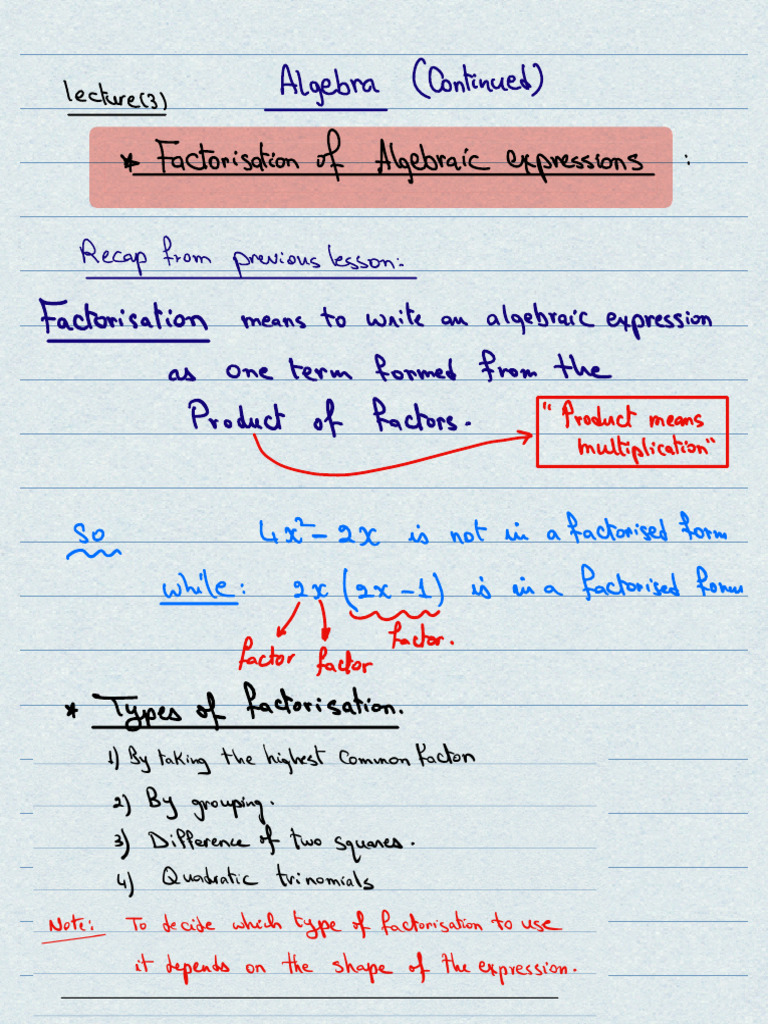 Algebra (Continued)
lecture(3)
* Factorisation of Algebraic expressions :
Recap from previous lesson:
Factorisation means to write an algebraic expression
as one term formed from the
Product of factors.
"Product means
multiplication"
So 4x² - 2x is not in a factorised form
while: 2x (2x - 1) is in a factorised form
factor factor factor.
* Types of factorisation.
1) By taking the highest common factor
2) By grouping.
3) Difference of two squares.
4) Quadratic trinomials
Note: To decide which type of factorisation to use
it depends on the shape of the expression.